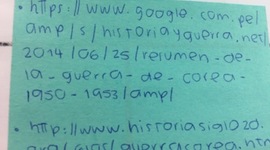 • https://www.google.com.pe/
amp/s/historiayguerra.net/
2014/06/25/resumen-de-
la-guerra-de-corea-
1950-1953/amp/
• http://www.historiasiglo20.
org/GLOS/guerracorea.htm